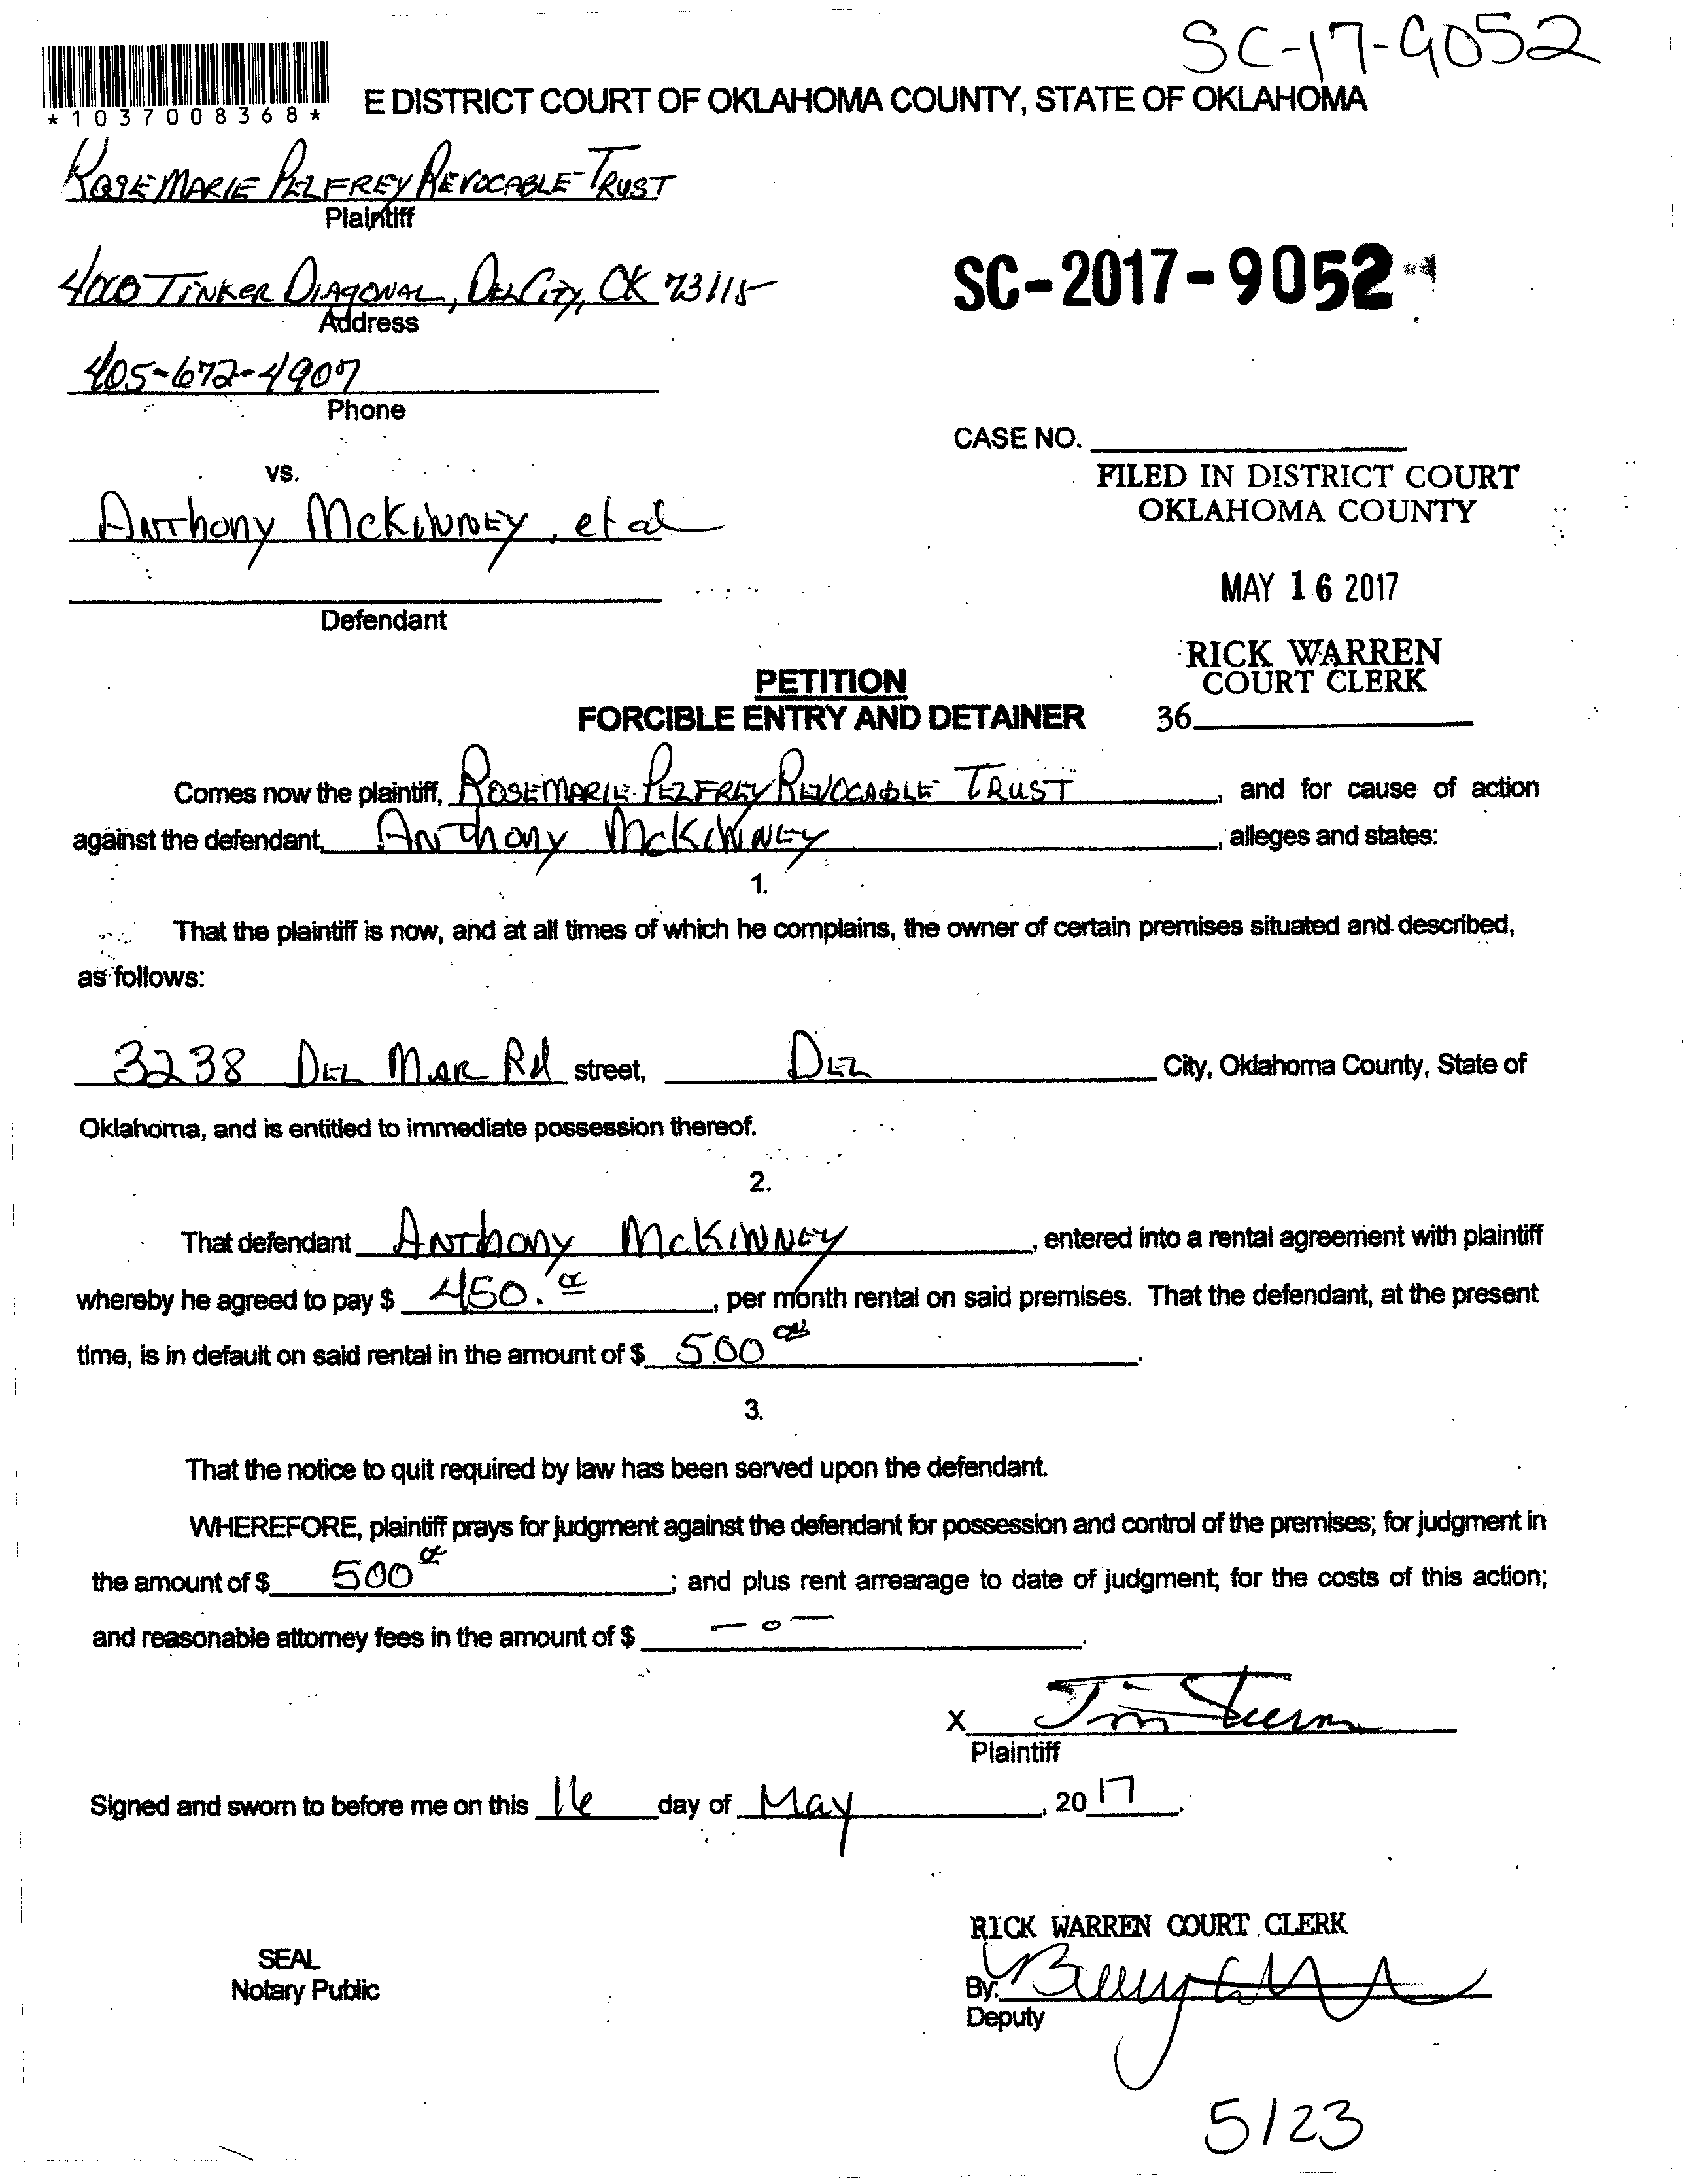 SC-17-9052
*1037008368*
E DISTRICT COURT OF OKLAHOMA COUNTY, STATE OF OKLAHOMA
ROSEMARIE PELFREY REVOCABLE TRUST
Plaintiff
4000 TINKER DIAGONAL, DEL CITY, OK 73115
Address
SC-2017-9052
405-672-4907
Phone
CASE NO.
vs.
FILED IN DISTRICT COURT
OKLAHOMA COUNTY
ANTHONY MCKINNEY, et al
MAY 16 2017
Defendant
RICK WARREN
COURT CLERK
PETITION
FORCIBLE ENTRY AND DETAINER
36
Comes now the plaintiff, ROSEMARIE PELFREY REVOCABLE TRUST, and for cause of action
against the defendant, ANTHONY MCKINNEY, alleges and states:
1.
That the plaintiff is now, and at all times of which he complains, the owner of certain premises situated and described,
as follows:
3238 DEL MAR Rd street, DEL City, Oklahoma County, State of
Oklahoma, and is entitled to immediate possession thereof.
2.
That defendant ANTHONY MCKINNEY, entered into a rental agreement with plaintiff
whereby he agreed to pay $ 450.00, per month rental on said premises. That the defendant, at the present
time, is in default on said rental in the amount of $ 500 00.
3.
That the notice to quit required by law has been served upon the defendant.
WHEREFORE, plaintiff prays for judgment against the defendant for possession and control of the premises; for judgment in
the amount of $ 500 00; and plus rent arrearage to date of judgment; for the costs of this action;
and reasonable attorney fees in the amount of $ -0-.
X
Plaintiff
Signed and sworn to before me on this 16 day of May, 2017.
RICK WARREN COURT CLERK
SEAL
Notary Public
By:
Deputy
5/23